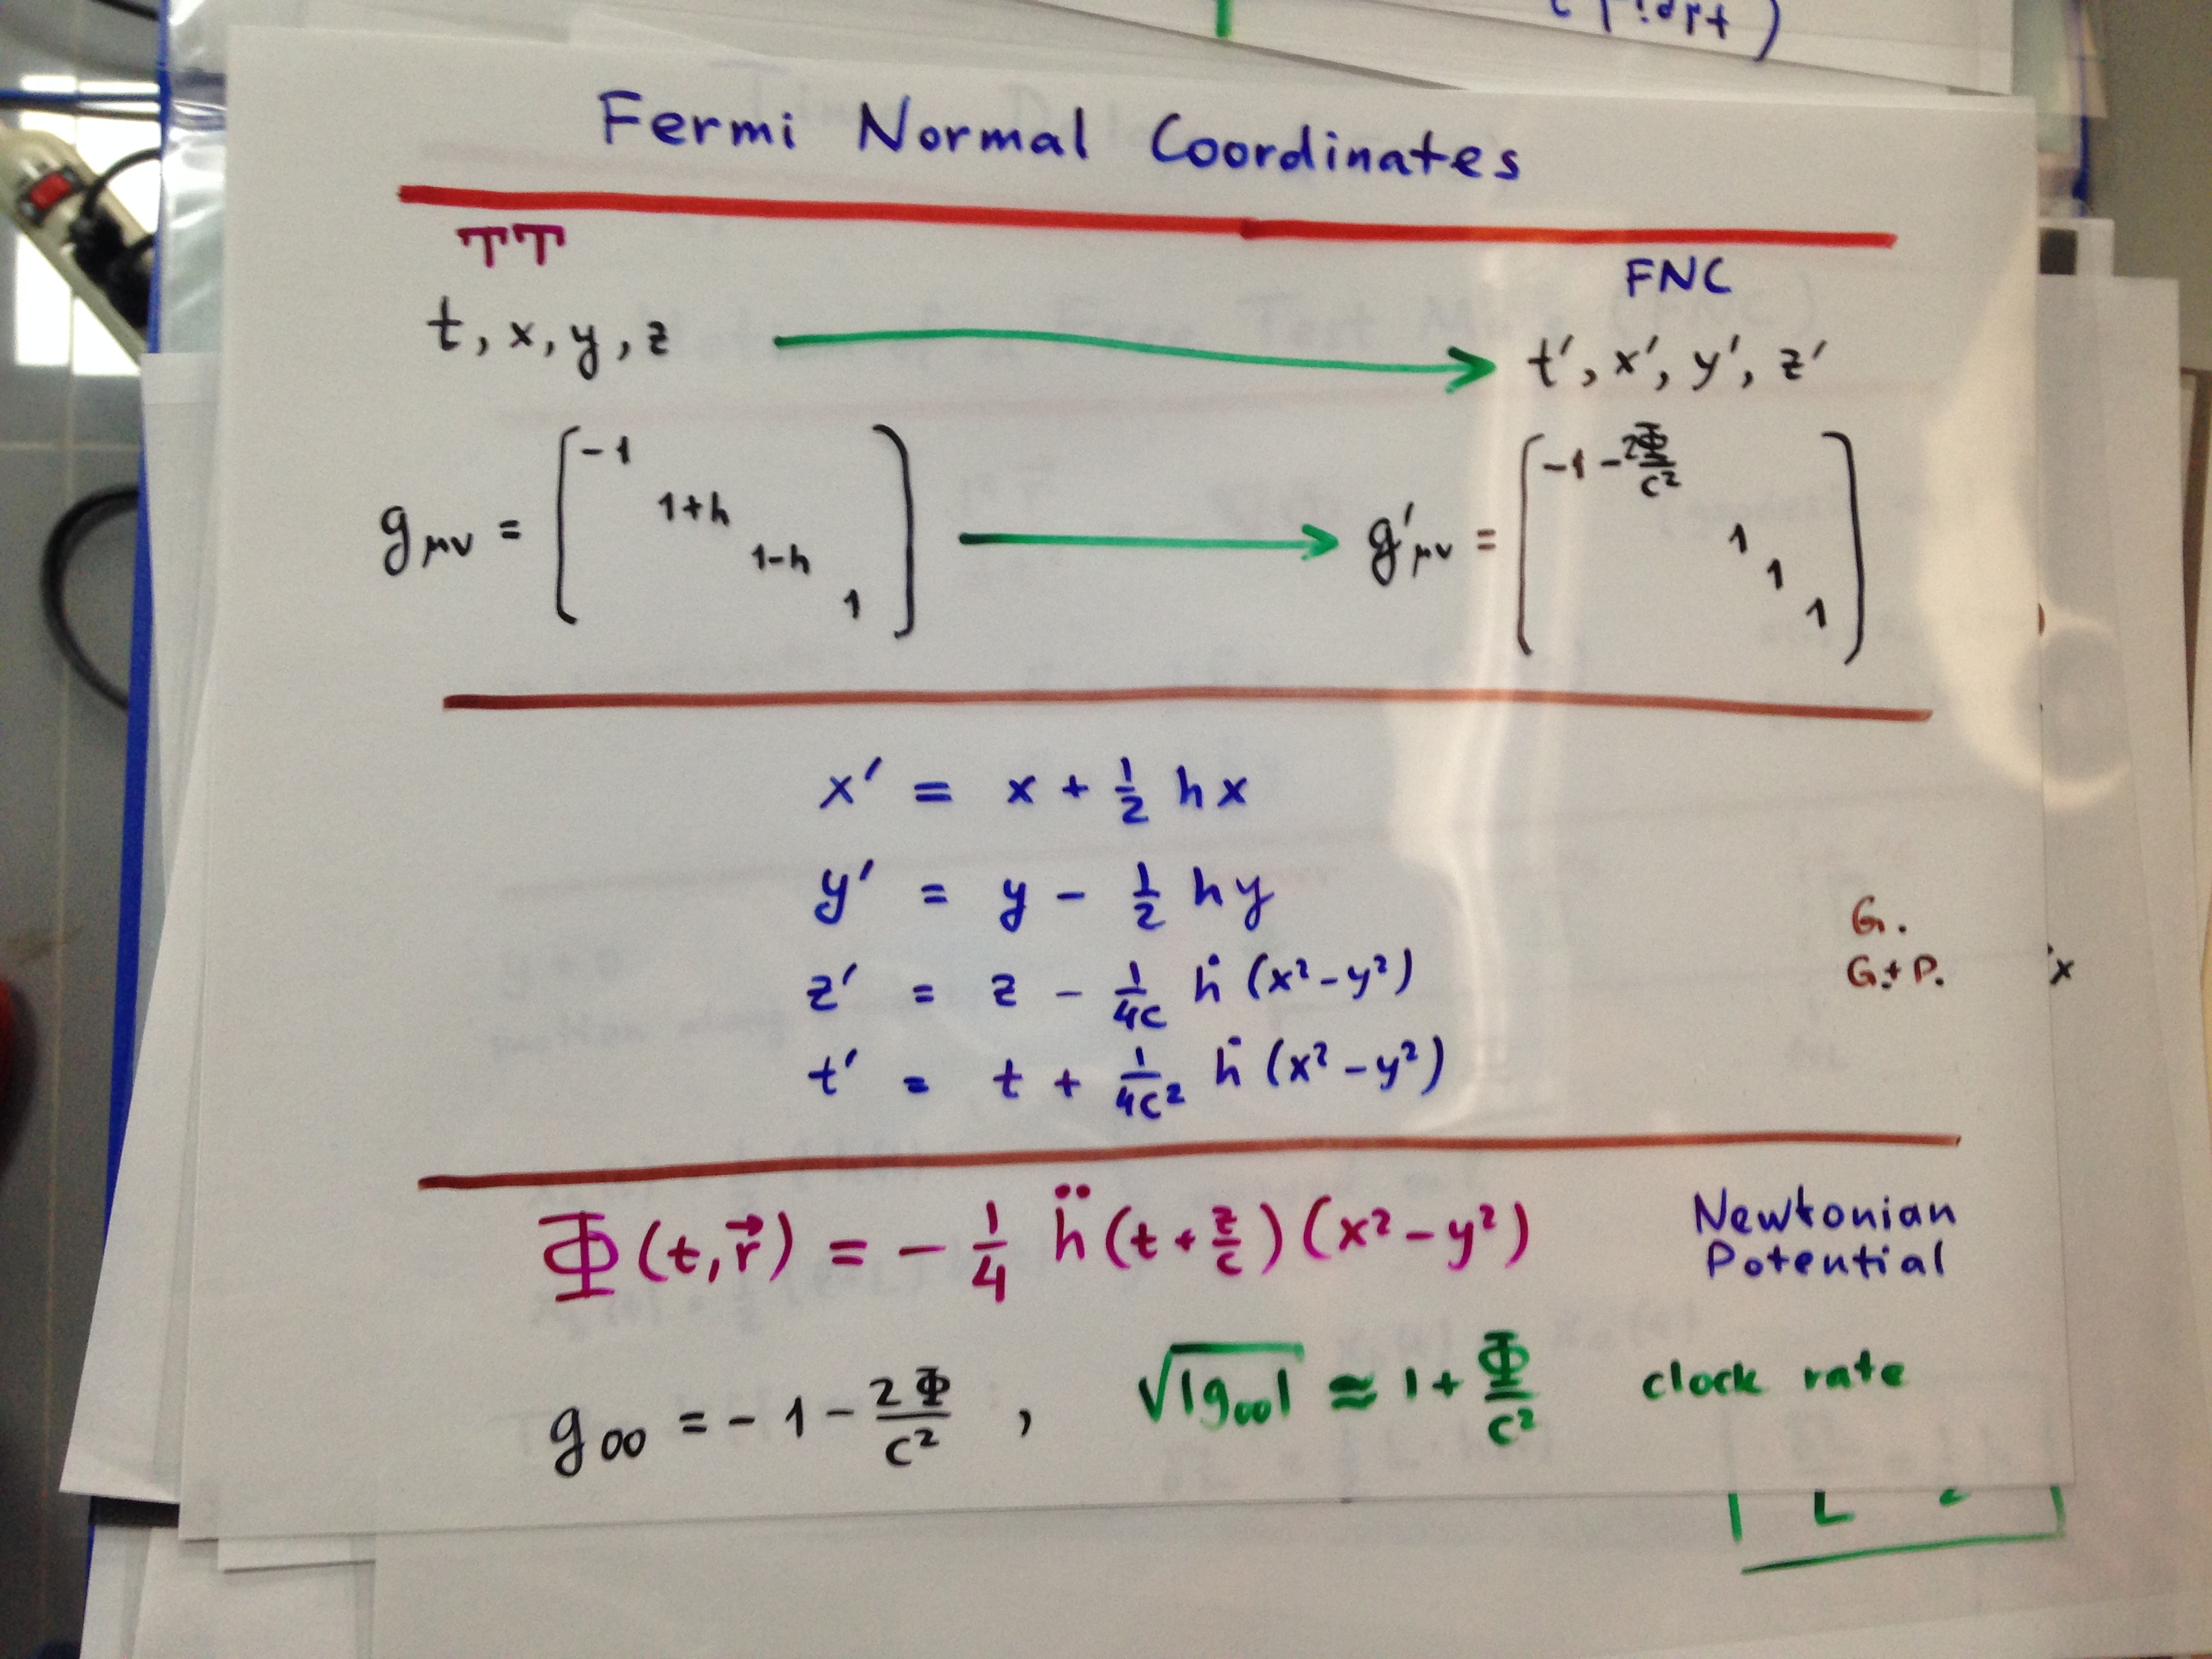 Fermi Normal Coordinates
TT
FNC
t, x, y, z → t′, x′, y′, z′
gμν = [ -1   1+h   1-h   1 ] → g′μν = [ -1 - 2Φ/c²   1   1   1 ]
x′ = x + 1/2 h x
y′ = y - 1/2 h y
z′ = z - 1/4c ḣ (x² - y²)
t′ = t + 1/4c² ḣ (x² - y²)
G.
G.+P.
x
Φ(t, r⃗) = - 1/4 ḧ (t + z/c) (x² - y²)
Newtonian
Potential
g00 = - 1 - 2Φ/c² , √|g00| ≈ 1 + Φ/c² clock rate